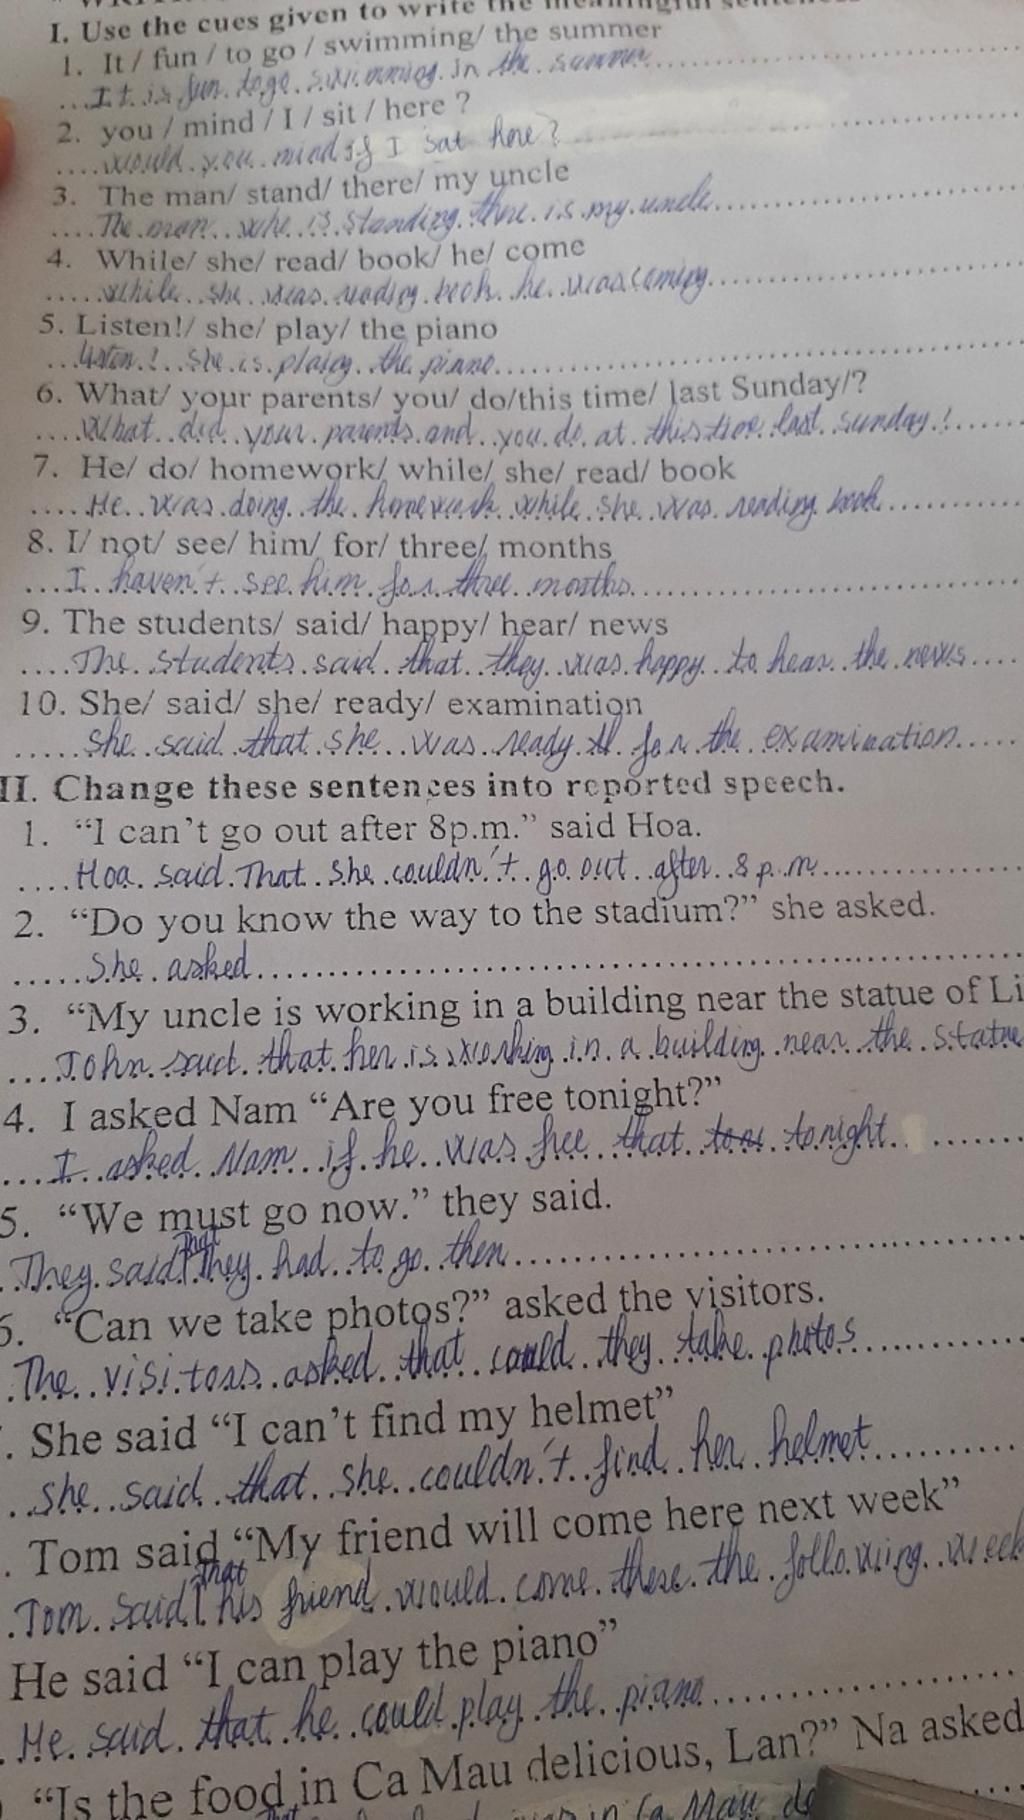 I. Use the cues given to write the meaningful
1. It / fun / to go / swimming/ the summer
It is fun to go swimming in the summer
2. you / mind / I / sit / here ?
would you mind if I sat here?
3. The man/ stand/ there/ my uncle
The man who is standing there is my uncle
4. While/ she/ read/ book/ he/ come
While she was reading book he was coming
5. Listen!/ she/ play/ the piano
Listen! She is plaing the piano
6. What/ your parents/ you/ do/this time/ last Sunday/?
What did your parents and you do at this time last Sunday!
7. He/ do/ homework/ while/ she/ read/ book
He was doing the homework while she was reading book
8. I/ not/ see/ him/ for/ three/ months
I haven't see him for three months
9. The students/ said/ happy/ hear/ news
The students said that they was happy to hear the news
10. She/ said/ she/ ready/ examination
She said that she was ready for the examination
II. Change these sentences into reported speech.
1. "I can't go out after 8p.m." said Hoa.
Hoa said That she couldn't go out after 8 p.m
2. "Do you know the way to the stadium?" she asked.
She asked
3. "My uncle is working in a building near the statue of Li
John said that her is working in a building near the statue
4. I asked Nam "Are you free tonight?"
I asked Nam if he was free that tonight
5. "We must go now." they said.
They said that they had to go then
"Can we take photos?" asked the visitors.
The visitors asked that could they take photos
. She said "I can't find my helmet"
She said that she couldn't find her helmet
. Tom said "My friend will come here next week"
Tom said that his friend would come there the following week
He said "I can play the piano"
He said that he could play the piano
"Is the food in Ca Mau delicious, Lan?" Na asked
in Ca Mau de